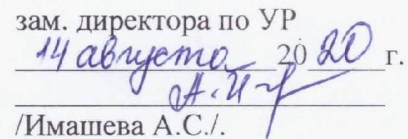 зам. директора по УР
14 августа 2020 г.
/Имашева А.С./.